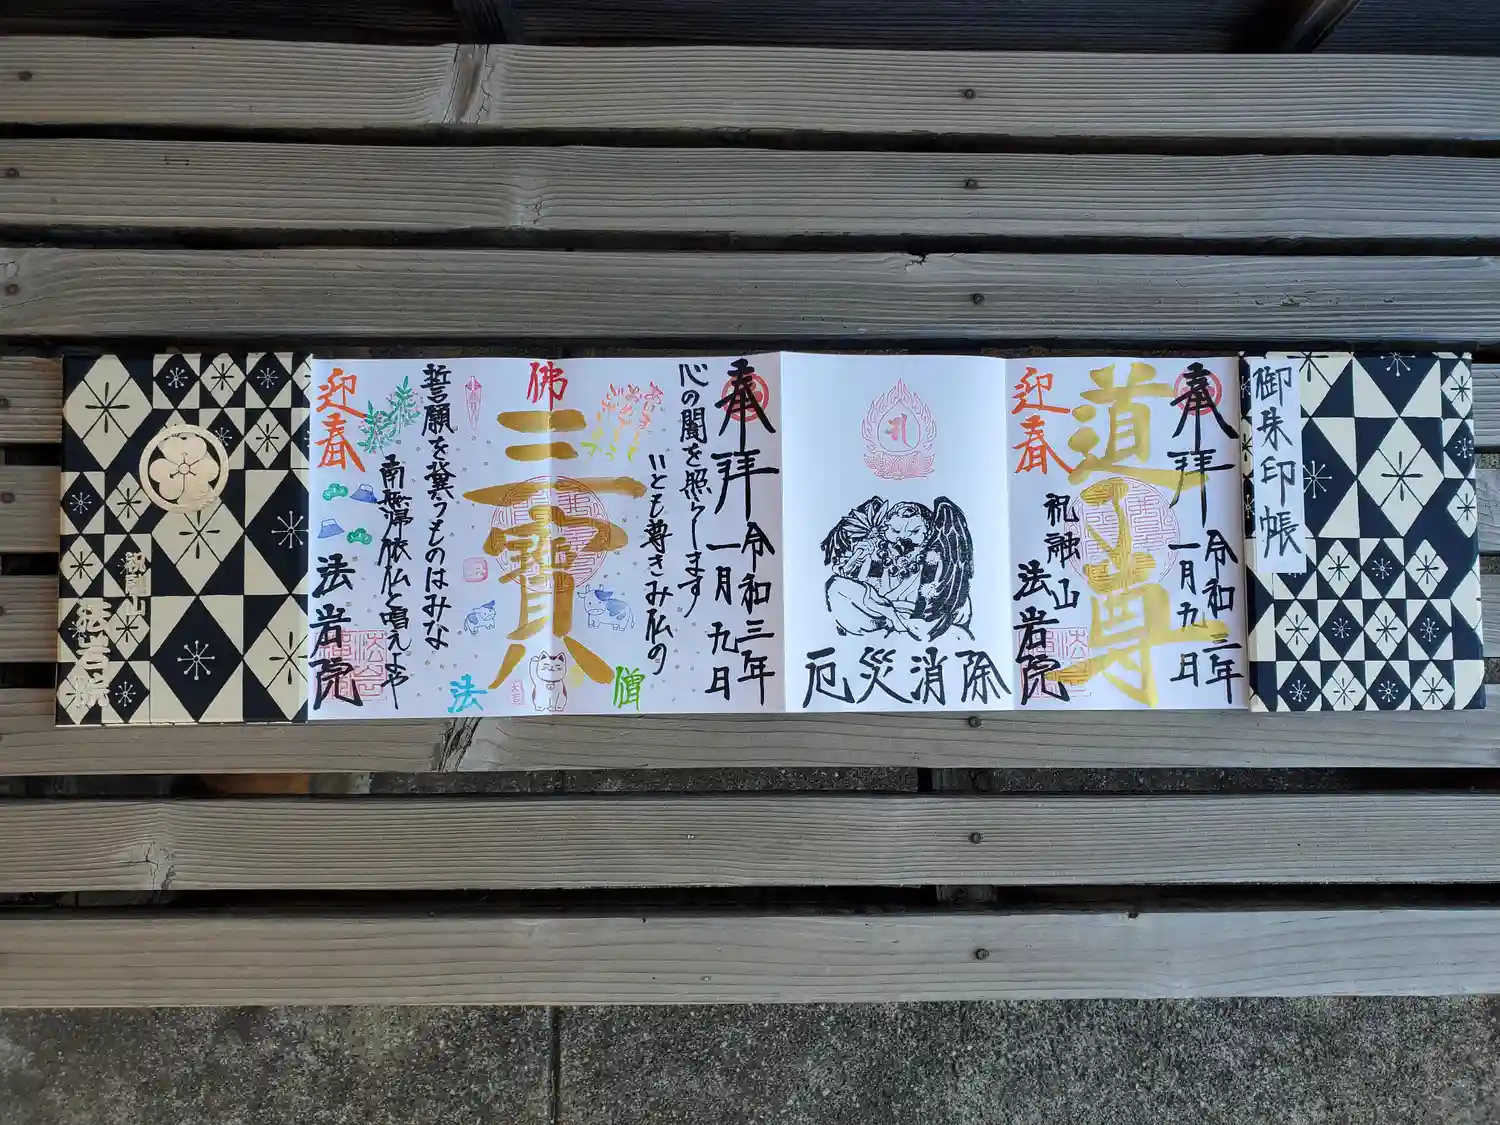 御朱印帳
奉拝
令和三年
一月九日
道了尊
迎春
祝融山
法岩院
厄災消除
奉拝
令和三年
一月九日
心の闇を照らします
いとも尊きみ仏の
佛
三寶
法
僧
誓願を
ものはみな
南無帰依仏と唱えよや
迎春
法岩院
祝融山
法岩院